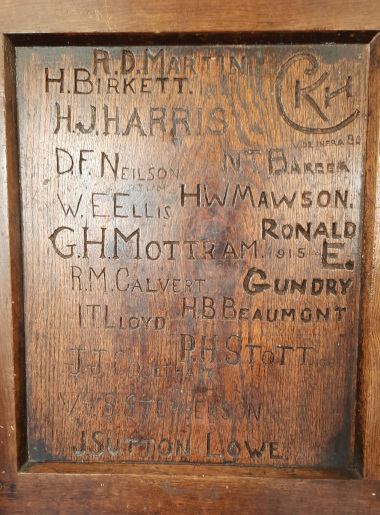 R.D. MARTIN
H. BIRKETT.
CKH
H.J. HARRIS
VIDE INFRA
D.F. NEILSON.
N.T. BARBER
H W MAWSON.
W. E ELLIS
RONALD
E.
GUNDRY
G.H. MOTTRAM. 1915
R.M. CALVERT
H B BEAUMONT
I T LLOYD
P.H STOTT
J.J.
STEPHENSON
J. SUTTON LOWE